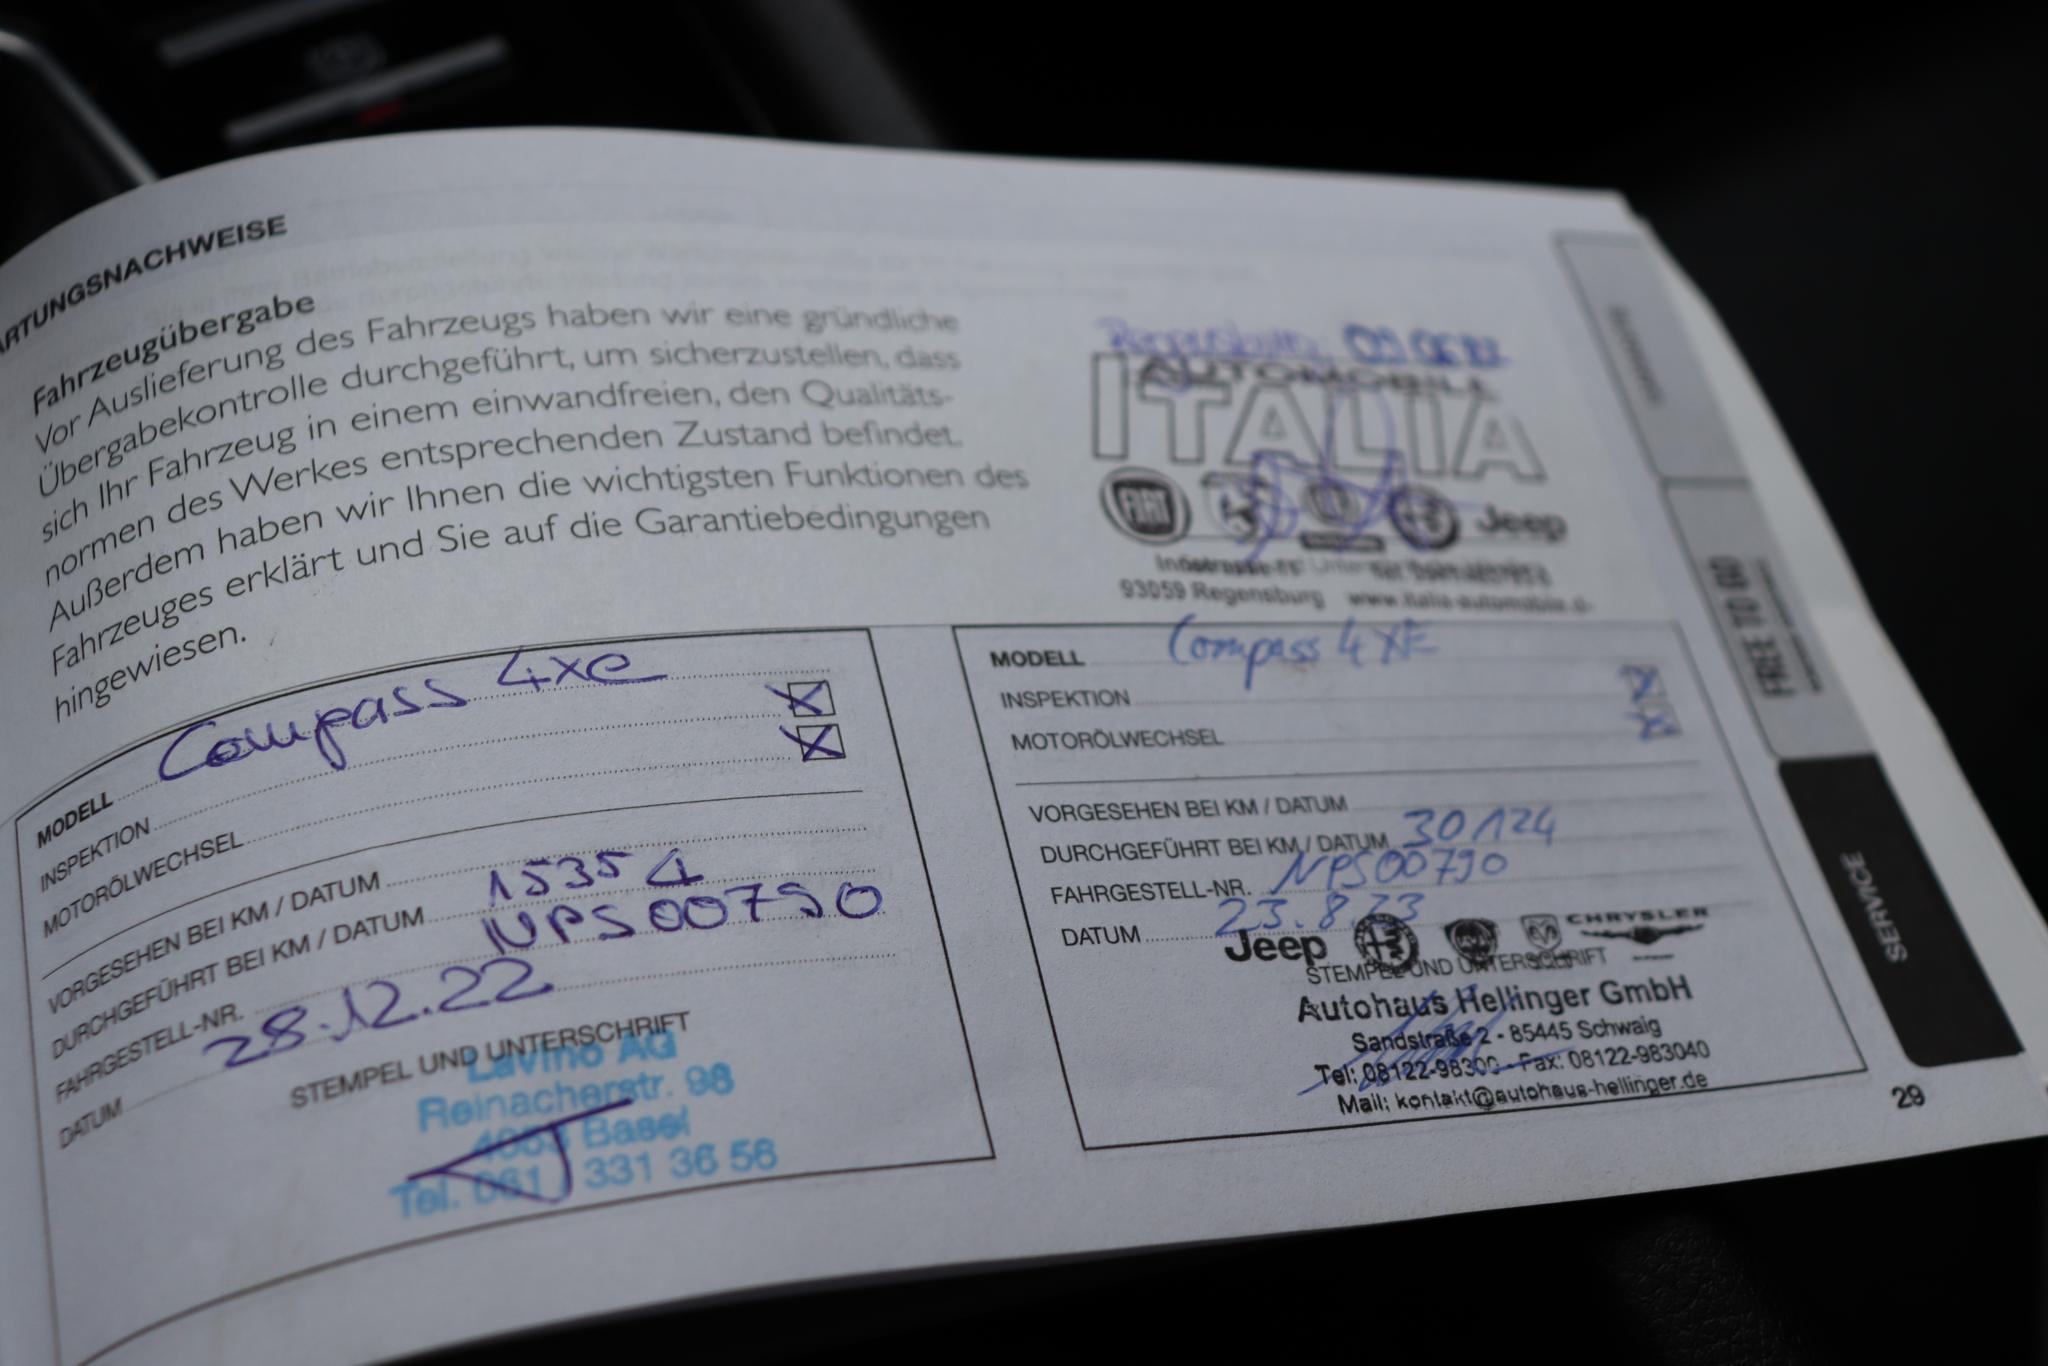 ARTUNGSNACHWEISE
Fahrzeugübergabe
Vor Auslieferung des Fahrzeugs haben wir eine gründliche
Übergabekontrolle durchgeführt, um sicherzustellen, dass
sich Ihr Fahrzeug in einem einwandfreien, den Qualitäts-
normen des Werkes entsprechenden Zustand befindet.
Außerdem haben wir Ihnen die wichtigsten Funktionen des
Fahrzeuges erklärt und Sie auf die Garantiebedingungen
hingewiesen.
Regensburg, 09.06.22
AUTOMOBILE
ITALIA
FIAT
Jeep
93059 Regensburg www.italia-automobile.d
MODELL Compass 4xe
INSPEKTION X
MOTORÖLWECHSEL X
VORGESEHEN BEI KM / DATUM
DURCHGEFÜHRT BEI KM / DATUM 15354
FAHRGESTELL-NR. NPS00790
DATUM 28.12.22
STEMPEL UND UNTERSCHRIFT
Lavino AG
Reinacherstr. 98
Basel
Tel. 061 / 331 36 56
MODELL Compass 4XE
INSPEKTION X
MOTORÖLWECHSEL X
VORGESEHEN BEI KM / DATUM
DURCHGEFÜHRT BEI KM / DATUM 30124
FAHRGESTELL-NR. NPS00790
DATUM 23.8.23
Jeep CHRYSLER
STEMPEL UND UNTERSCHRIFT
Autohaus Hellinger GmbH
Sandstraße 2 - 85445 Schwaig
Tel: 08122-98300 - Fax: 08122-983040
Mail: kontakt@autohaus-hellinger.de
29
SERVICE